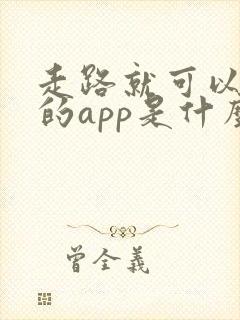 走路就可以
的app是什麼
曾全義